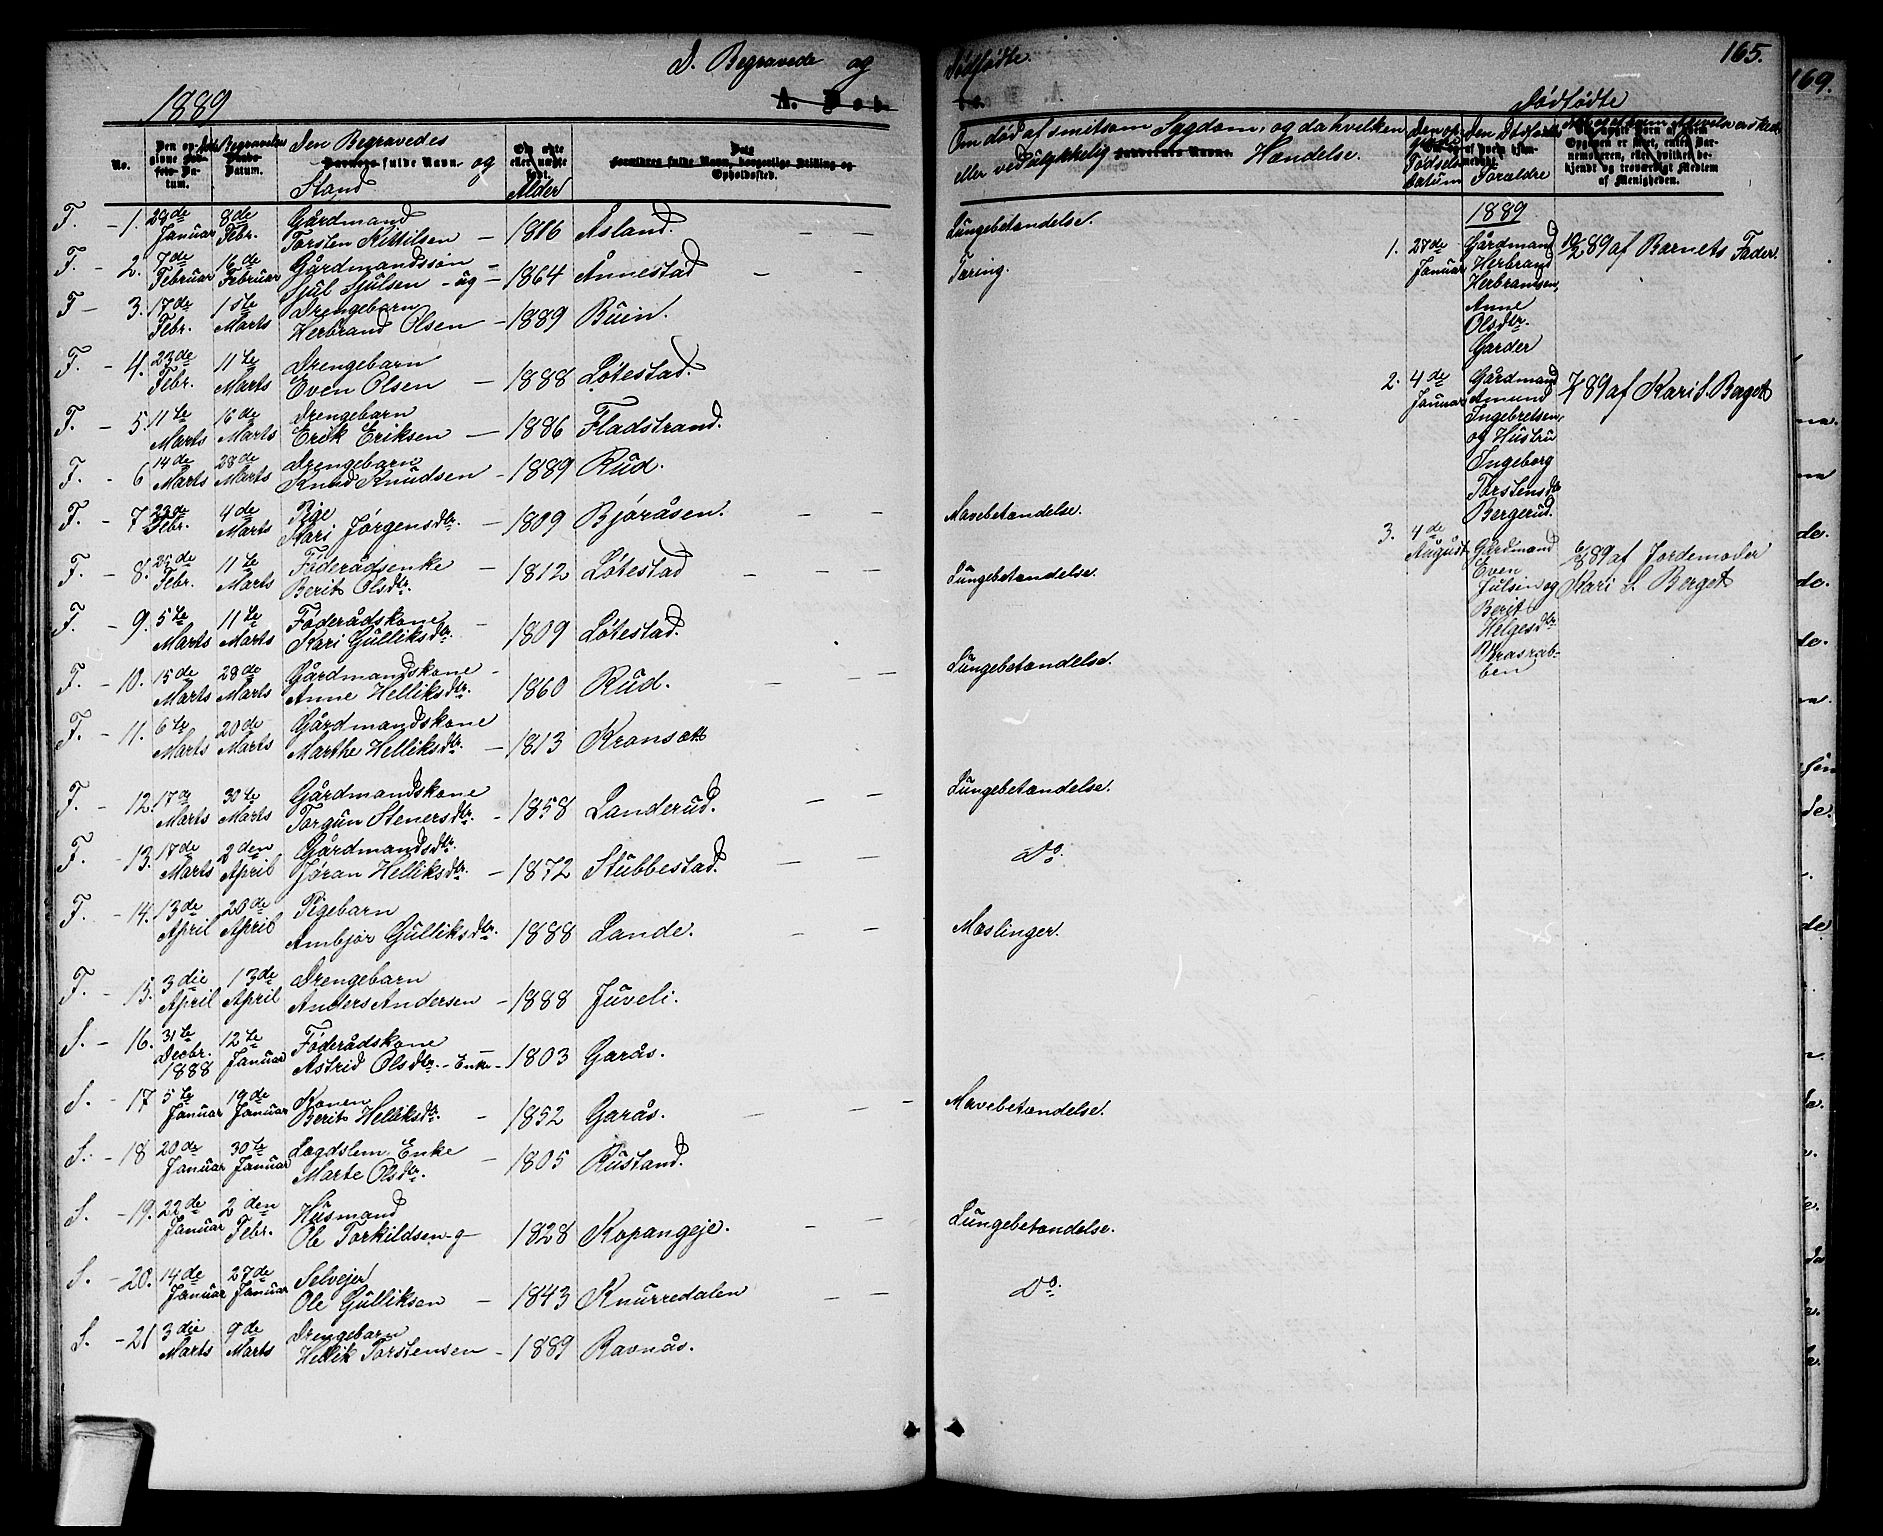 D. Begravede og Dødfødte.
165.
169.
1889
A. Dø
Dødfødte
No.
Den Begravedes
fulde Navn og
Stand
Datum.
Alder
Opholdssted.
Om død af smitsom Sygdom, og da hvilken
eller ved ulykkelig Hændelse.
Fødsels
datum
Den Dødfødtes
Forældre
F. - 1. 28de Januar 8de Febr. Gårdmand
Torsten Kittilsen - 1816 Åsland. - - Lungebetændelse.
F. - 2. 7de Februar 16de Februar Gårdmandssøn -
Sjul Sjulsen - ug - 1864 Ånnestad - - Tæring.
F - 3. 17de Febr. 1ste Marts Drengebarn
Herbrand Olsen - 1889 Buin.
F. - 4. 23de Febr. 11te Marts Drengebarn
Even Olsen - 1888 Løtestad.
F. - 5. 11te Marts 16de Marts Drengebarn
Erik Eriksen - 1886 Fladstrand.
F. - 6 14de Marts 28de Marts Drengebarn
Knud Knudsen - 1889 Rud.
F. - 7. 23de Febr. 4de Marts Pige
Kari Jørgensdtr. - 1809 Bjøråsen. - - Mavebetændelse.
F. - 8. 25de Febr. 11te Marts Føderådsenke
Berit Olsdtr. - 1812 Løtestad - - - Lungebetændelse.
F. - 9. 5te Marts 11te Marts Føderådskone
Kari Gulliksdtr. - 1809 Løtestad.
F. - 10. 15de Marts 28de Marts Gårdmandskone -
Anne Helliksdtr. 1860 Rud. - - - Lungebetændelse.
F. - 11. 6te Marts 20de Marts Gårdmandskone
Marthe Helliksdtr. - 1813 Kronsæt
F. - 12. 17de Marts 30te Marts Gårdmandskone
Torgun Stenersdtr. - 1858 Landerud. - - Lungebetændelse.
F. - 13. 17de Marts 2den April Gårdmandsdtr.
Jøran Helliksdtr. - 1872 Stubbestad. - - Do.
F. - 14. 13de April 20de April Pigebarn
Ambjør Gulliksdtr. - 1888 Lande. - - Mæslinger.
F. - 15. 3die April 13de April Drengebarn
Anders Andersen - 1888 Juveli.
S. - 16. 31te Decbr. 1888 12te Januar Føderådskone
Astrid Olsdtr. - Enke - 1803 Garås.
S. - 17 5te Januar 19de Januar Konen
Berit Helliksdtr. - 1852 Garås. - - - Mavebetændelse.
S. - 18 20de Januar 30te Januar Lægdslem Enke
Marte Olsdtr. - 1805 Rustand.
S. - 19. 22de Januar 2den Febr. Husmand
Ole Torkildsen - g - 1828 Kopangeje. - - Lungebetændelse.
S. - 20. 14de Januar 27de Januar Selvejer
Ole Gulliksen - 1843 Knurredalen - - Do.
S. - 21 3die Marts 9de Marts Drengebarn
Hellik Torstensen - 1889 Ravnås.
1889
1. 27de Januar Gårdmand 10/2 89 af Barnets Fader.
Herbrand
Herbrandsen,
Anne
Olsdtr.
Garder
2. 4de Januar Gårdmand 89 af Kari S. Berget
Amund
Ingebretsen,
og Hustru
Ingeborg
Torstensdtr
Bergerud.
3. 4de August Gårdmand 6/8 89 af Jordemoder
Even Kari S. Berget
Julsen og
Berit
Helgesdtr
Vrasrab-
ben